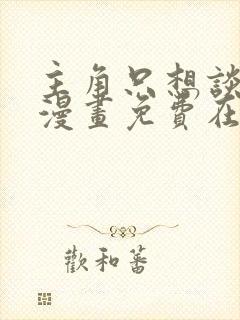 主角只想談
漫畫免費在
歡和蕃